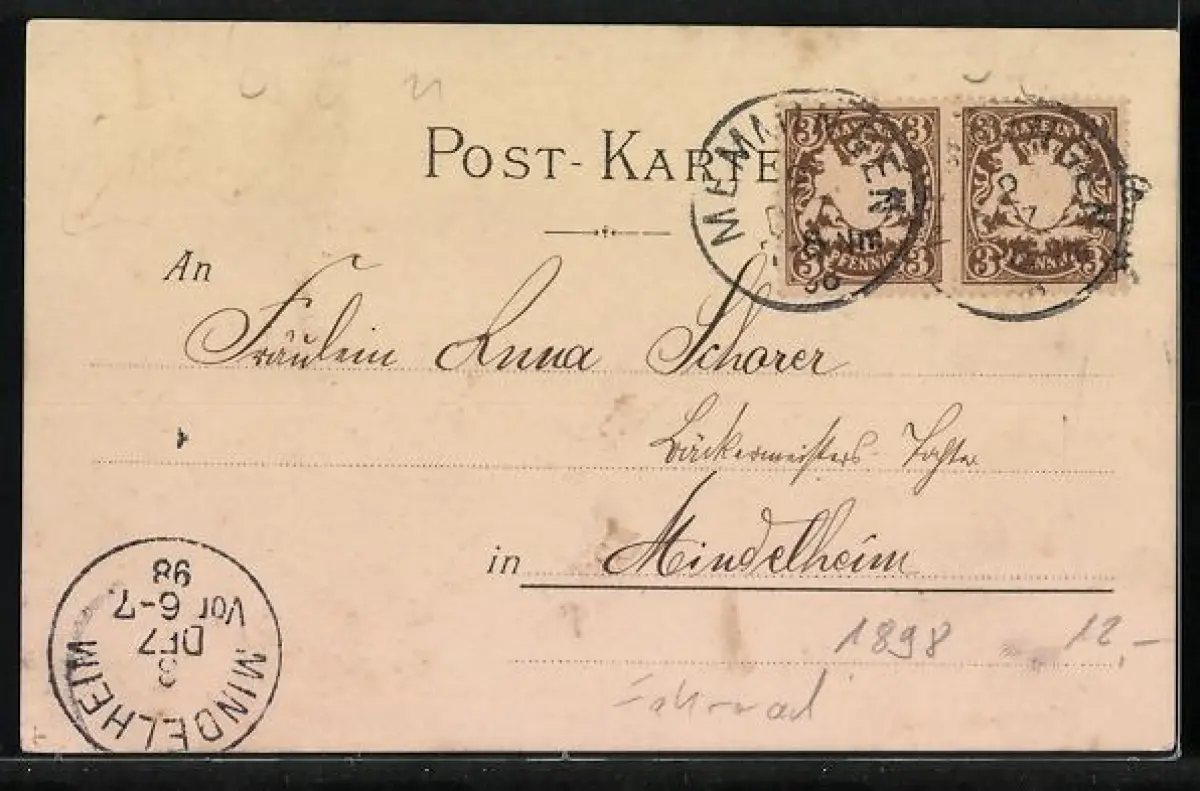 POST-KARTE
MEMMINGEN
8 Nm
98
3 BAYERN 3
3 PFENNIG 3
3 BAYERN 3
3 PFENNIG 3
An
Fräulein Anna Schorer
Bäckermeisters Tochter
in Mindelheim
MINDELHEIM
3
DEZ
Vor 6-7
98
1898
12,-
Fahrrad